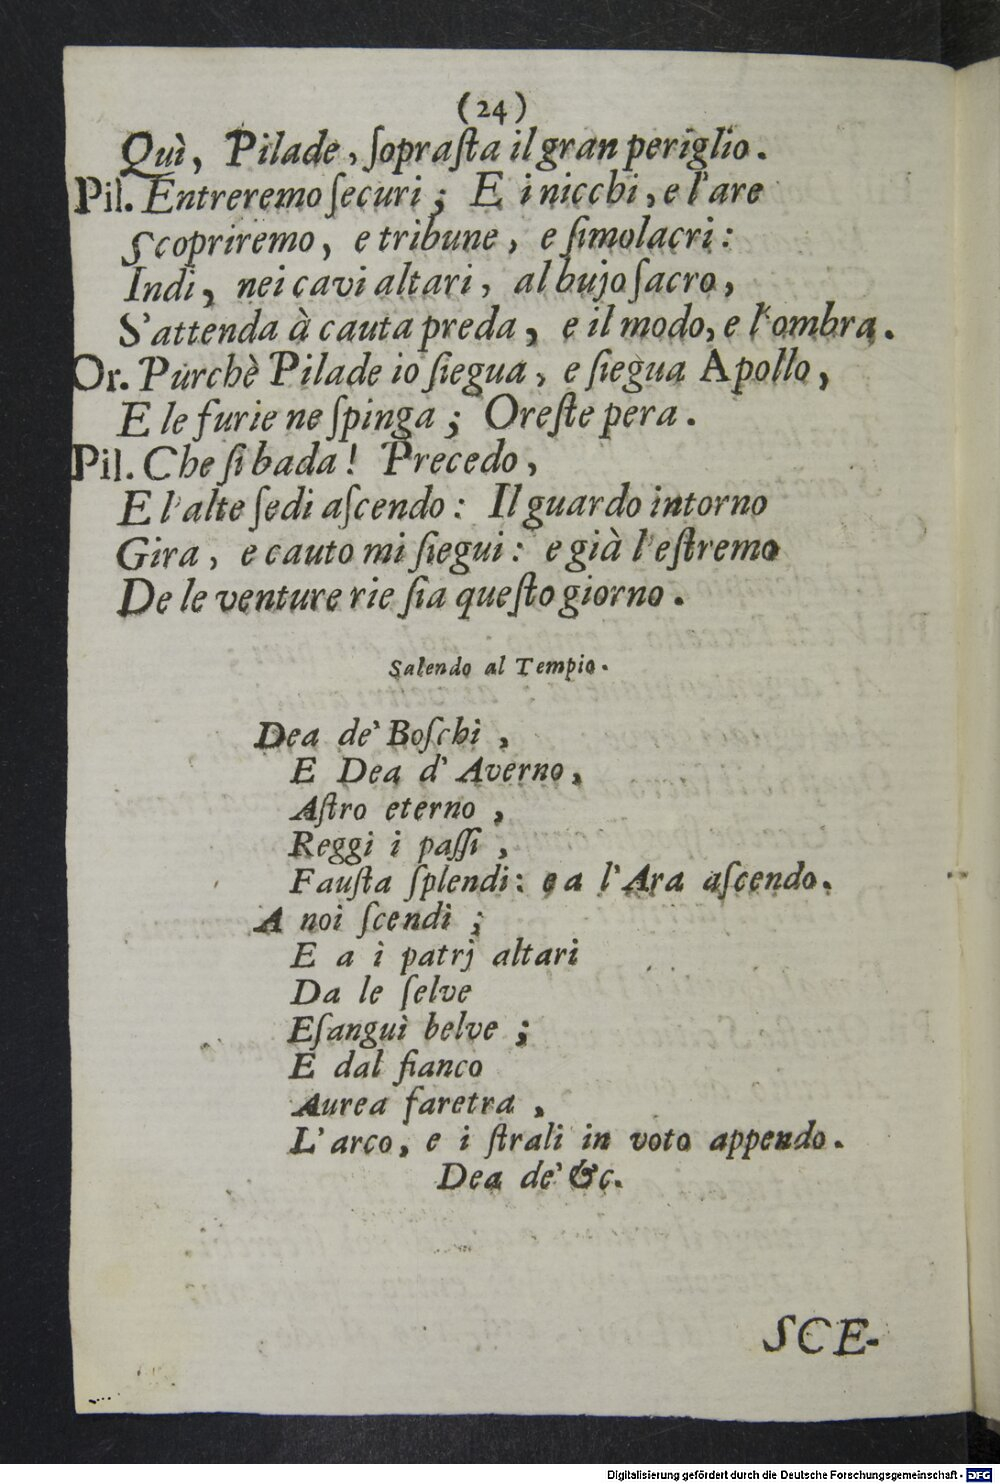 (24)
Quì, Pilade, ſopraſta il gran periglio.
Pil. Entreremo ſecuri; E i nicchi, e l'are
Scopriremo, e tribune, e ſimolacri:
Indi, nei cavi altari, al bujo ſacro,
S'attenda à cauta preda, e il modo, e l'ombra.
Or. Purchè Pilade io ſiegua, e ſiegua Apollo,
E le furie ne ſpinga; Oreſte pera.
Pil. Che ſi bada! Precedo,
E l'alte ſedi aſcendo: Il guardo intorno
Gira, e cauto mi ſiegui: e già l'eſtremo
De le venture rie ſia queſto giorno.
Salendo al Tempio.
Dea de' Boſchi,
E Dea d'Averno,
Aſtro eterno,
Reggi i paſſi,
Fauſta ſplendi: e a l'Ara aſcendo.
A noi ſcendi;
E a i patrj altari
Da le ſelve
Eſangui belve;
E dal fianco
Aurea faretra,
L'arco, e i ſtrali in voto appendo.
Dea de' &c.
SCE-
Digitalisierung gefördert durch die Deutsche Forschungsgemeinschaft - DFG